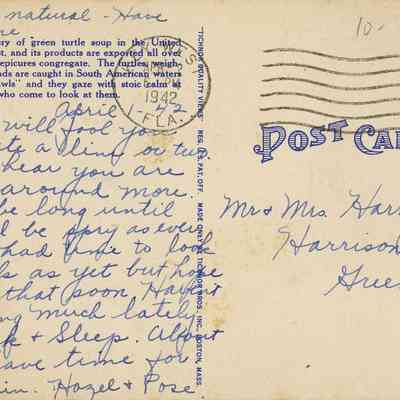 natural - Have
re
ry of green turtle soup in the United
st, and its products are exported all over
epicures congregate. The turtles, weigh-
nds are caught in South American waters
wls" and they gaze with stoic calm at
who come to look at them.
April 1 - 42
will fool you
te a line or two
hear you are
around more.
be long until
l be spry as ever
had time to look
ls as yet but hope
that soon Haven't
ng much lately
k & Sleep. About
ave time for
in. Hazel & Pose.
WEST
1942
FLA.
TICHNOR QUALITY VIEWS REG. U.S. PAT. OFF. MADE ONLY BY TICHNOR BROS. INC., BOSTON, MASS.
10-
POST CA
Mr & Mrs Har
Harrison
Gree